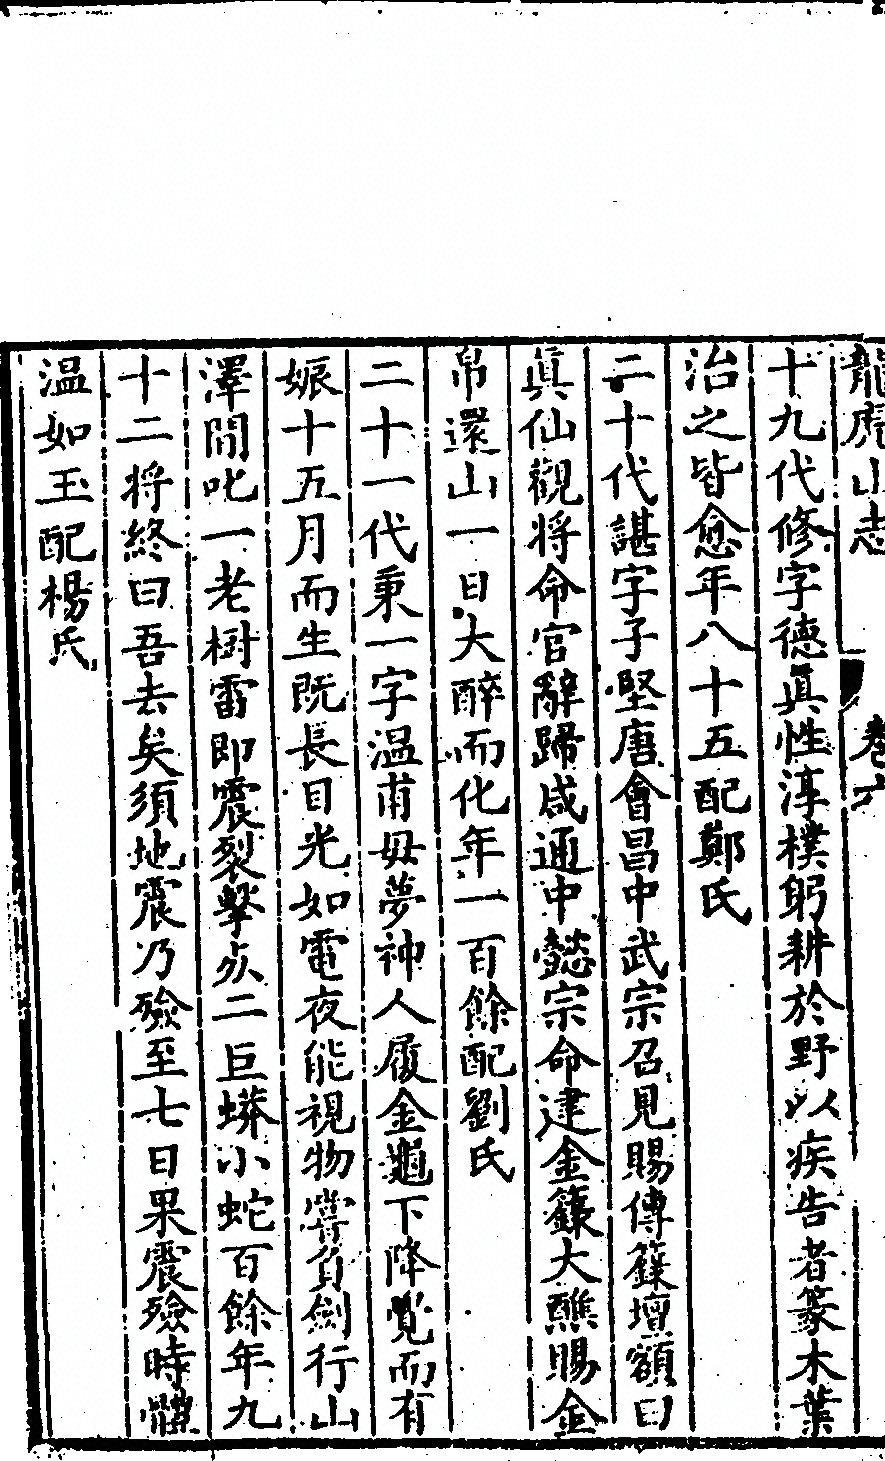 龍虎山志 卷六
十九代修字德眞性淳樸躬耕於野以疾告者篆木葉
治之皆愈年八十五配鄭氏
二十代諶字子堅唐會昌中武宗召見賜傳籙壇額曰
眞仙觀將命官辭歸咸通中懿宗命建金籙大醮賜金
帛還山一日大醉而化年一百餘配劉氏
二十一代秉一字温甫母夢神人履金龜下降覺而有
娠十五月而生既長目光如電夜能視物嘗負劍行山
澤間叱一老樹雷即震裂擊死二巨蟒小蛇百餘年九
十二将終曰吾去矣須地震乃殮至七日果震殮時體
温如玉配楊氏